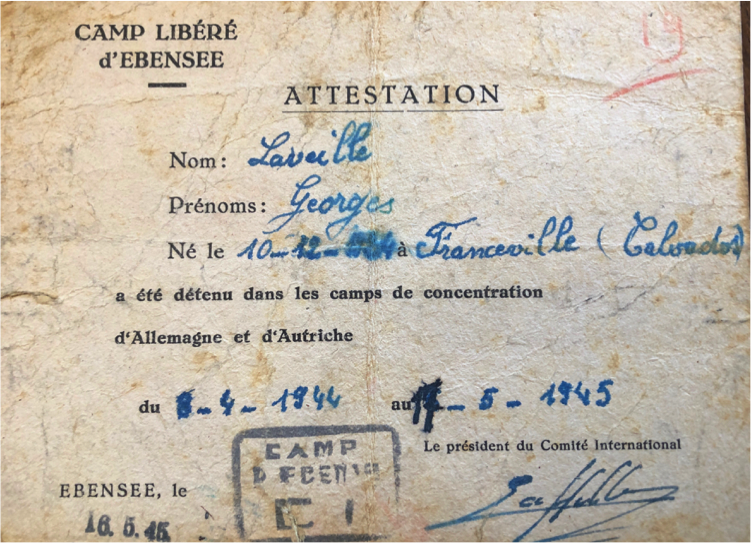 CAMP LIBÉRÉ
d'EBENSEE
19
ATTESTATION
Nom: Laveille
Prénoms: Georges
Né le 10-12- à Franceville (Calvados)
a été détenu dans les camps de concentration
d'Allemagne et d'Autriche
du 8-4-1944 au 17-5-1945
Le président du Comité International
CAMP
D'EBENSEE
EBENSEE, le
16.5.45